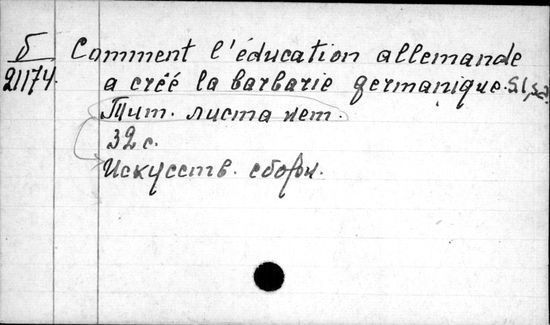 Б
21174.
Comment l'éducation allemande
a créé la barbarie germanique. S.l, s.a.
Тит. листа нет.
32 с.
Искусств. сборн.